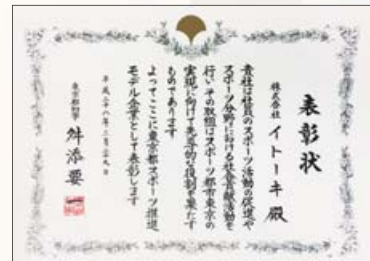 表彰状
株式会社 イトーキ 殿
貴社は社員のスポーツ活動の促進や
スポーツ分野における社会貢献活動を
行いその取組はスポーツ都市東京の
実現に向けて先導的な役割を果たす
ものであります
よってここに東京都スポーツ推進
モデル企業として表彰します
平成二十八年三月二十九日
東京都知事 舛添要一